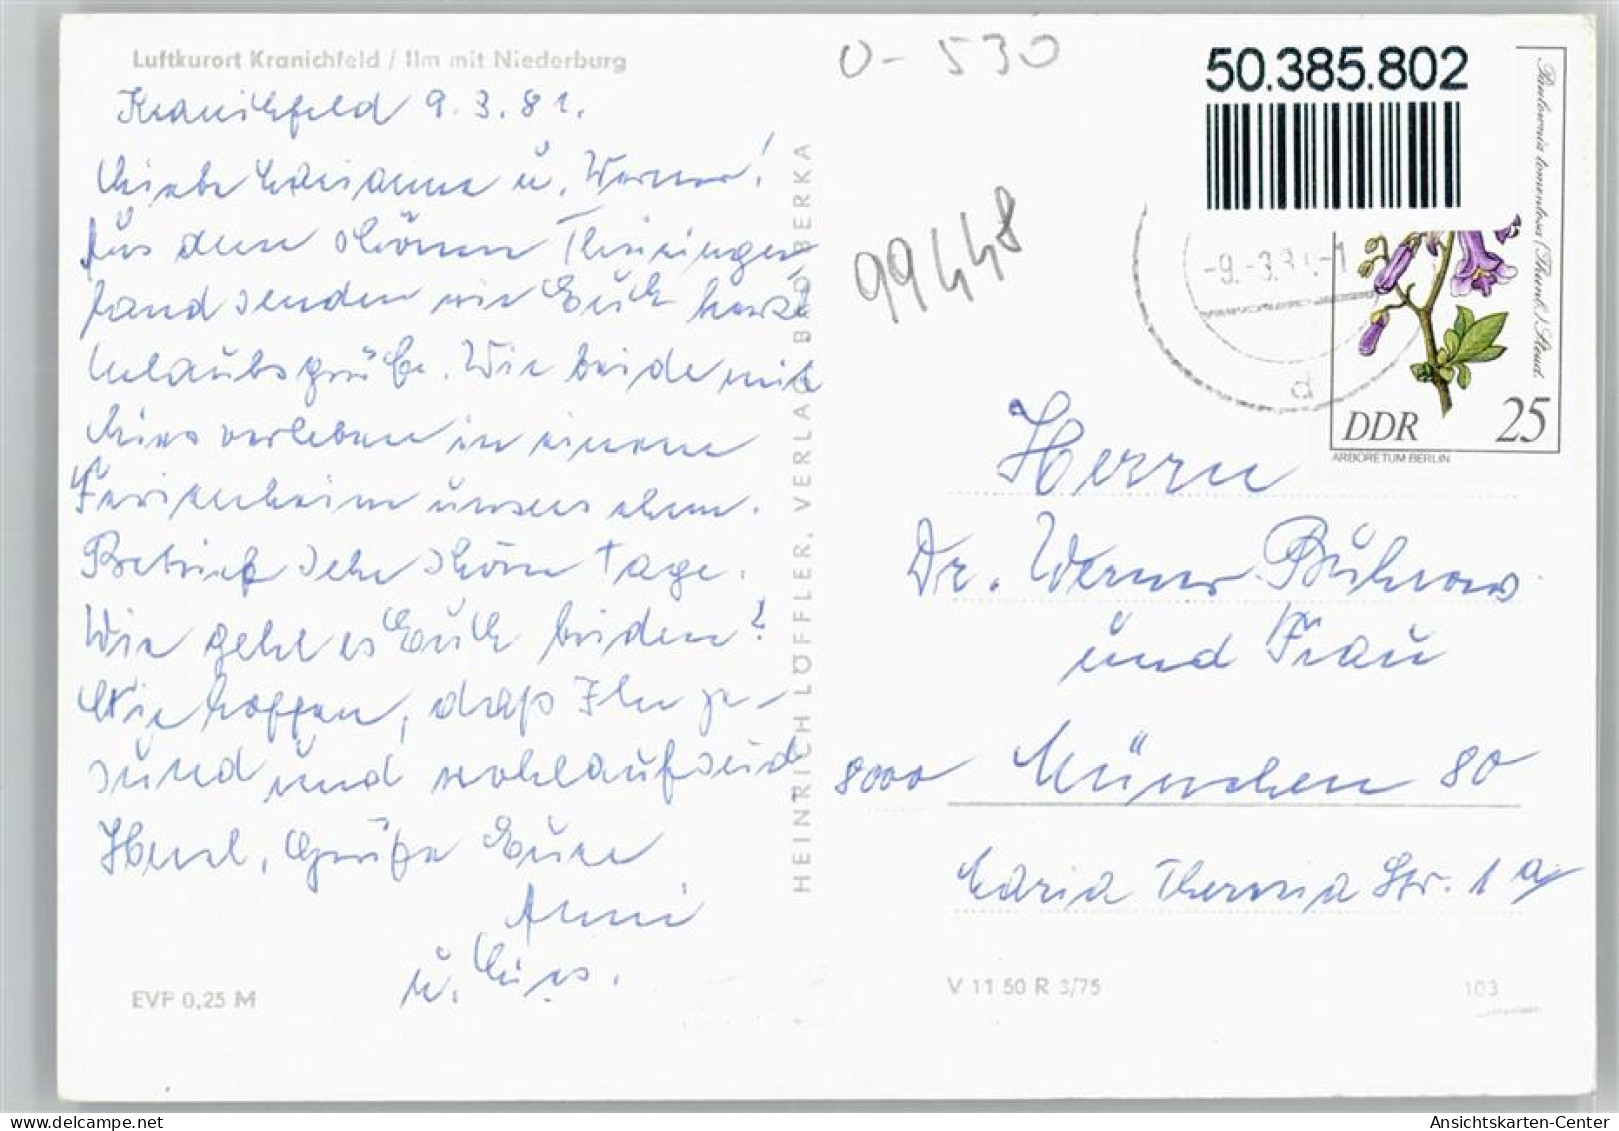 Luftkurort Kranichfeld / Ilm mit Niederburg
Kranichfeld 9.3.81.
Liebe Marianne u. Werner!
Aus dem schönen Thüringer
Land senden wir Euch herzl.
Urlaubsgrüße. Wir beide mit
verleben in einem
Ferienheim unseres ehem.
Betrieb sehr schöne Tage.
Wie geht es Euch beiden?
Wir hoffen, daß Ihr ge-
sund und wohlauf seid
Herzl. Grüße Eure
Anni
u.
EVP 0,25 M
HEINRICH LÖFFLER, VERLAG BAD BERKA
0-530
99448
50.385.802
-9.-3.81.-1
d
Paulownia tomentosa (Thunb.) Steud.
DDR 25
ARBORETUM BERLIN
Herrn
Dr. Werner Bührow
und Frau
8000 München 80
Maria Theresia Str. 1a
V 11 50 R 3/75
103
Ansichtskarten-Center